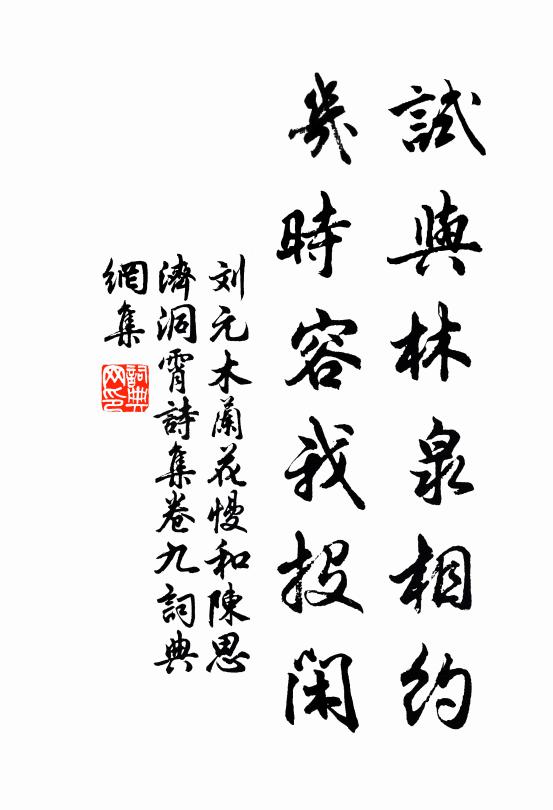 試與林泉相約
幾時容我投閑
刘元木蘭花慢和陳思
濟洞霄詩集卷九詞典
網集
詞典網印